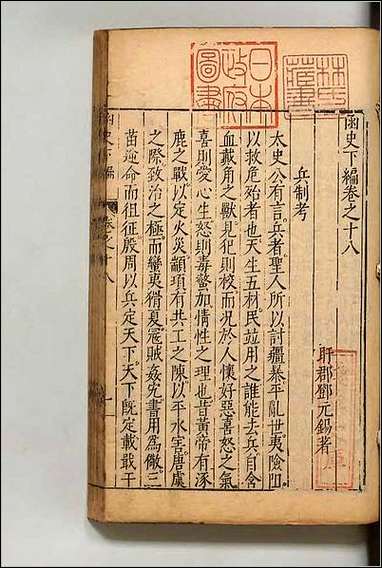 函史下編卷之十八
盱郡鄧元錫著
兵制考
太史公有言兵者聖人所以討彊暴平亂世夷險阻
以救危殆者也天生五材民竝用之誰能去兵自含
血戴角之獸見犯則校而況於人懷好惡喜怒之氣
喜則愛心生怒則毒螫加情性之理也昔黃帝有涿
鹿之戰以定火災顓項有共工之陳以平水害唐虞
之際致治之極而蠻夷猾夏冦賊姦宄書用為儆三
苗逆命而徂征殷周以兵定天下天下旣定載戢干
函史下編
卷之十八
一
日本
政府
圖書